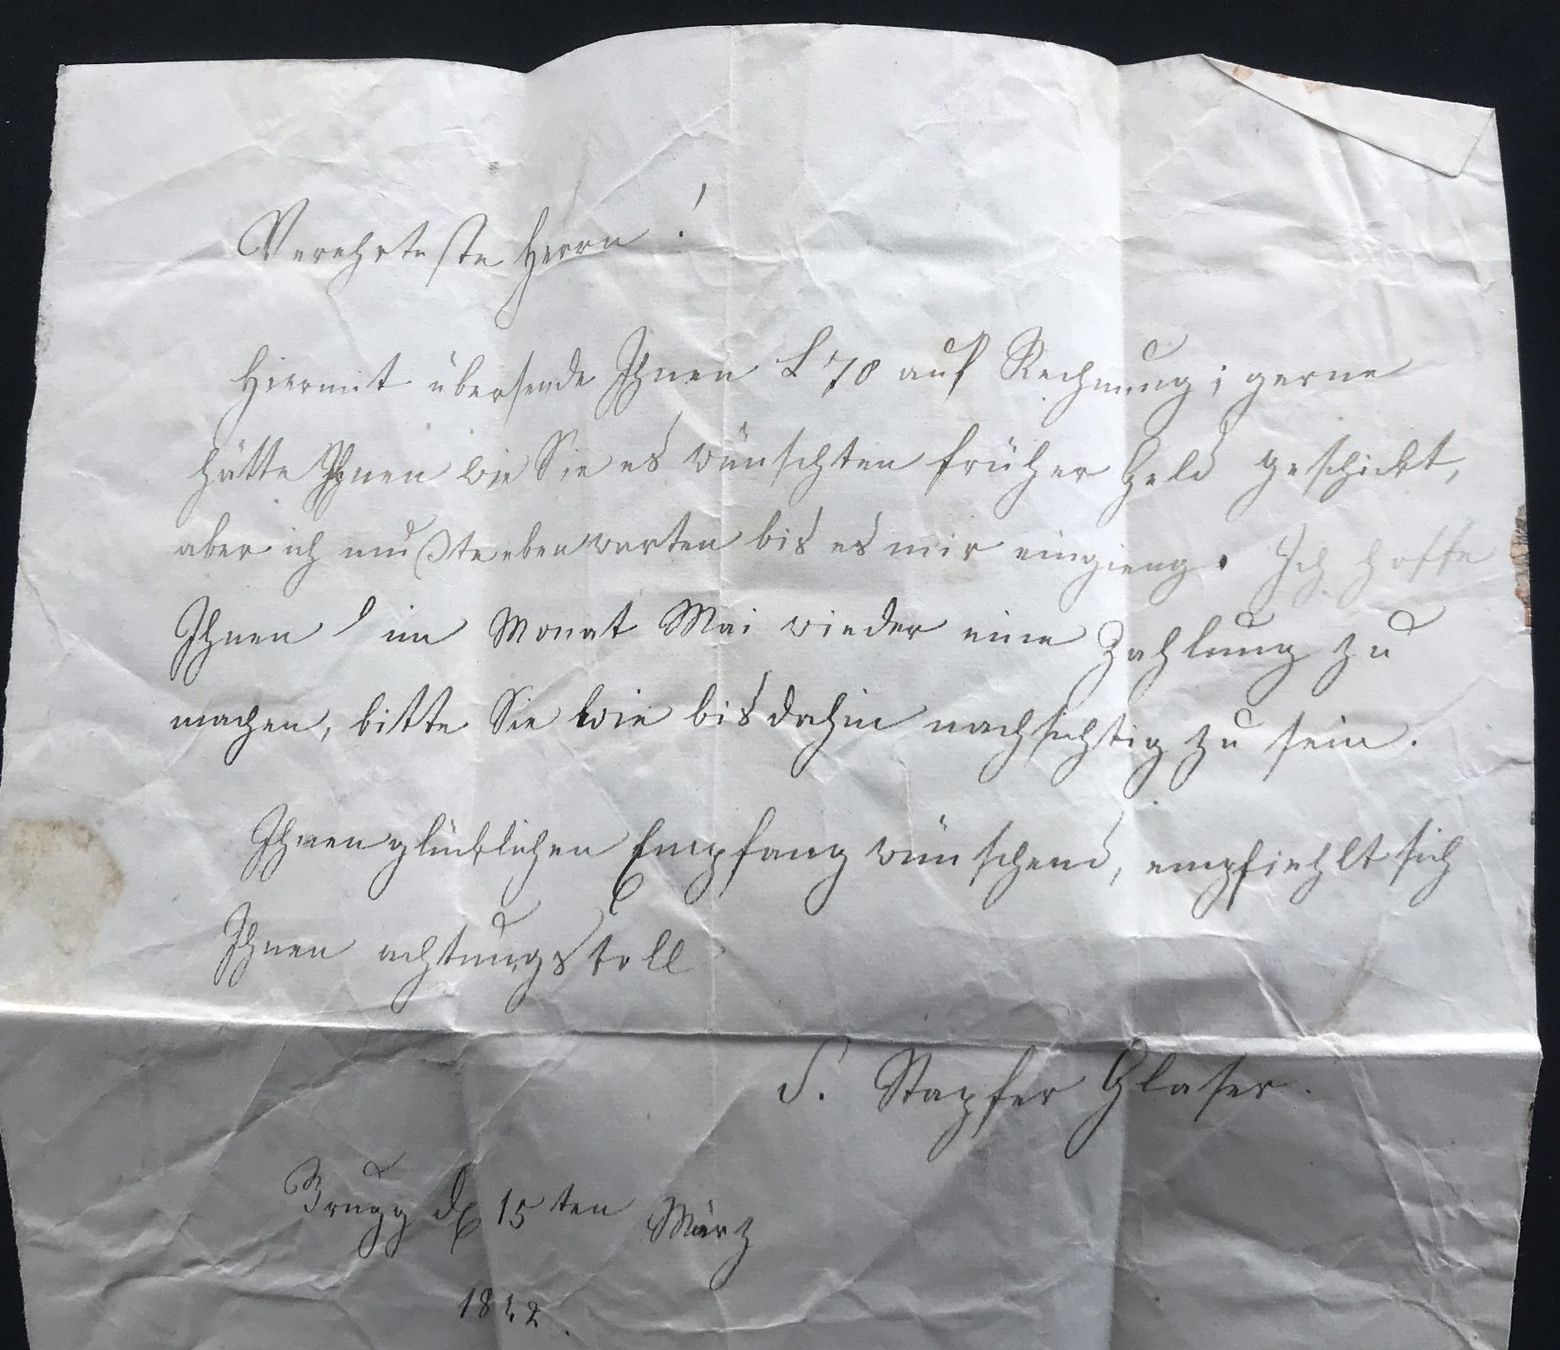 Verehrteste Herrn!
Hiermit übersende Ihnen L 70 auf Rechnung; gerne
hätte Ihnen wie Sie es wünschten früher Geld geschickt,
aber ich mußte eben warten bis es mir eingieng. Ich hoffe
Ihnen im Monat Mai wieder eine Zahlung zu
machen, bitte Sie wie bis dahin nachsichtig zu sein.
Ihnen glücklichen Empfang wünschend, empfiehlt sich
Ihnen achtungsvoll
S. Stapfer Glaser.
Brugg d 15ten März
1842.